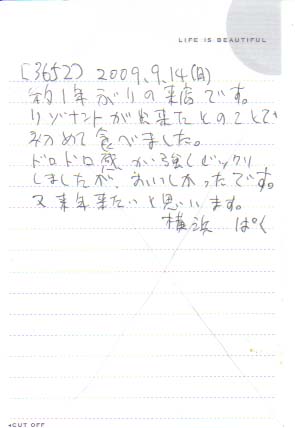 LIFE IS BEAUTIFUL
(3652) 2009.9.14(月)
約1年ぶりの来店です。
リゾナントが出来たとのことで
初めて食べました。
ドロドロ感が強くビックリ
しましたが、おいしかったです。
又来年来たいと思います。
横浜 ぱく
◂CUT OFF